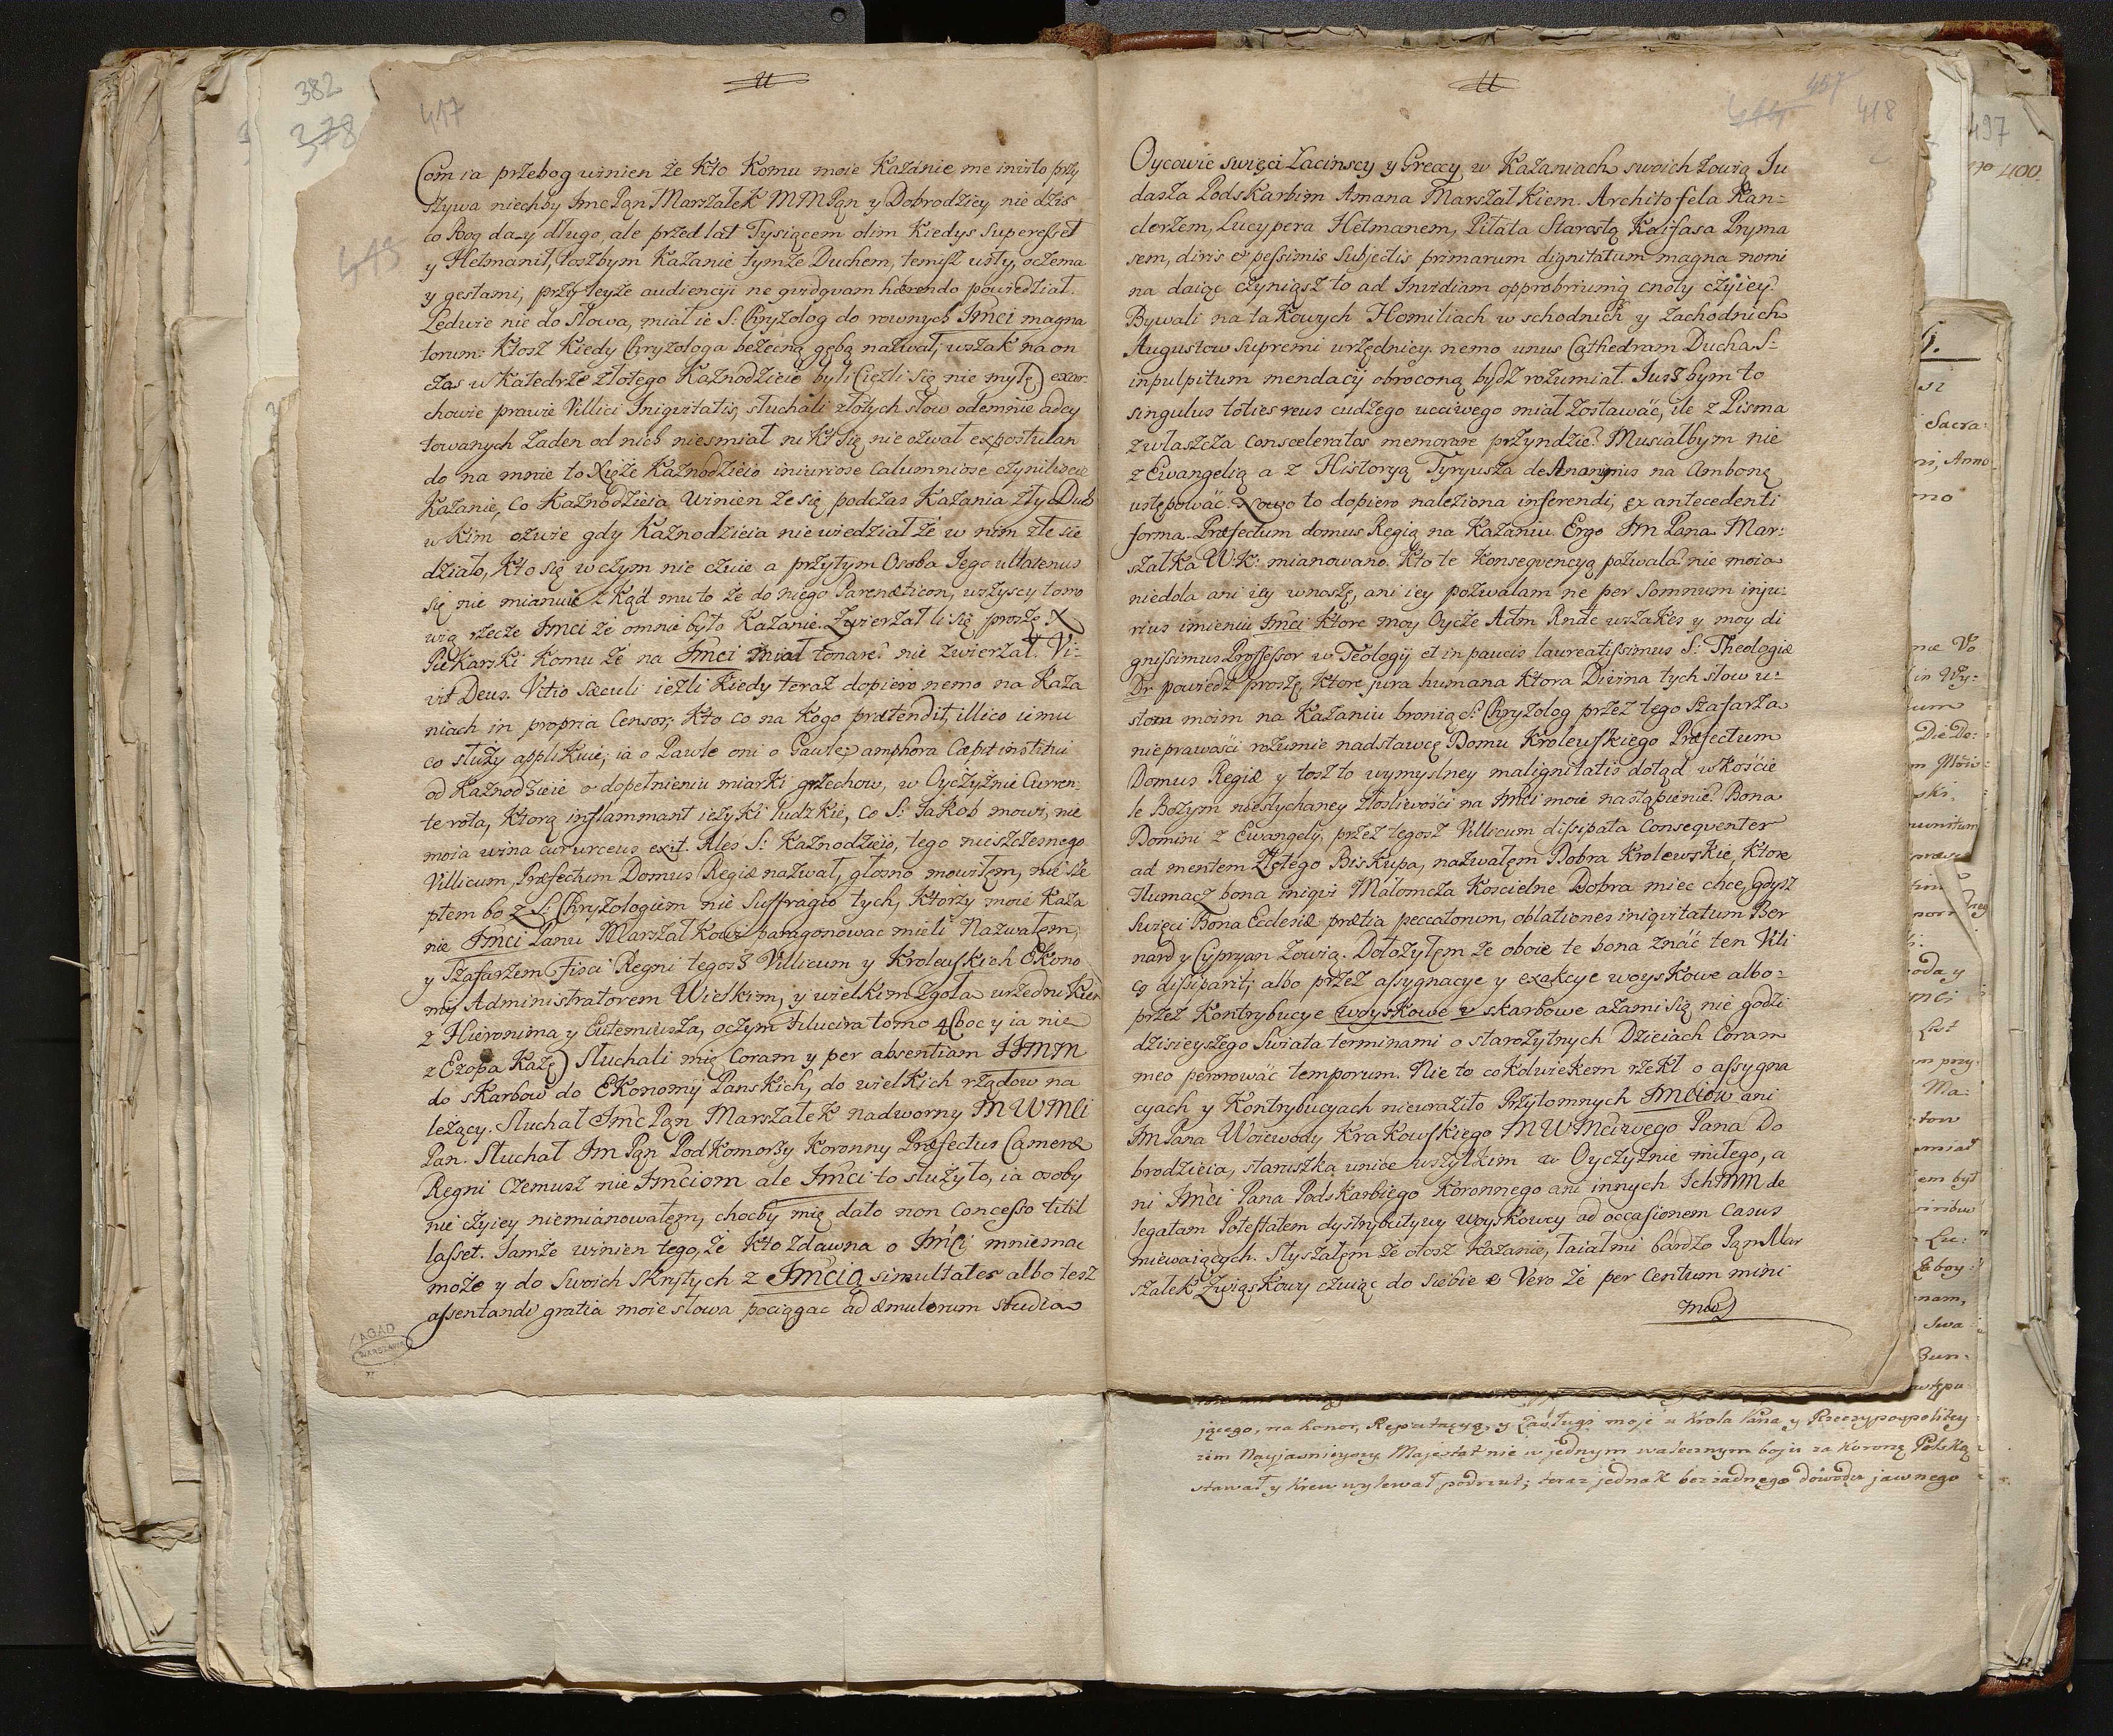 382
378
417
413
Com ia przebog winien że Kto Komu moie Kazanie me invito przy
szywa niechby Jmc Pąn Marszałek MMPąn y Dobrodziey nie dzis
co Bog day długo, ale przed lat Tysiącem olim Kiedys Superesset
y Hetmanił, toszbym Kazanie tymże Duchem, temisz usty, oczema
y gestami, przy teyże audiencyi ne quidquam hærendo powiedział.
Ledwie nie do słowa, miał ie S: Chryzolog do rownych Jmci magna
torum: Ktosz Kiedy Chryzologa bezecną gębą nazwał, wszak na on
czas w Katedrze złotego Kaznodzieie byli (ieźli się nie mylę) exar-
chowie prawie Villici Iniqvitatis, słuchali złotych słow odemnie adcy
towanych żaden od nich niesmiał nikt się nie ozwał expostulan
do na mnie to Xięże Kaznodzieio iniuriose calumniose czyniliscie
Kazanie, Co Kaznodzieia winien że się podczas Kazania zły Duch
w Kim ozwie gdy Kaznodzieia nie wiedział że w nim złe się
działo, Kto się w czym nie czuie a przytym Osoba Jego ullatenus
się nie mianuie z Kąd mu to że do niego Parenæticon, wszyscy to mo
wią rzecze Jmci że omnie było Kazanie. Zwierzał li się proszę X
Piekarski Komu że na Jmci miał tonare? nie zwierzał. Vi-
vit Deus. Vitio sæculi ieźli Kiedy teraz dopiero nemo na Kaza
niach in propria Censor, Kto co na Kogo prætendit, illico iemu
co służy applikuie, ia o Pawle oni o Gawle; amphora Cæpit institui
od Kaznodzieie o dopełnieniu miarki grzechow, w Oyczyźnie Curren-
te rota, Ktorą inflammant ięzyki ludzkie, co S: Jakob mowi, nie
moia wina cur urceus exit. Aleś S: Kaznodzieio, tego nieszczesnego
Villicum Præfectum Domus Regiæ nazwał, głosno mowiłem, nie sze
ptem bo z S: Chryzologiem nie Suffragio tych, Ktorzy moie Kaza
nie Jmci Panu Marszałkowi paragonowac mieli Nazwałem,
y Szafarzem Fisci Regni tegosz Villicum y Krolewskich Ekono
mij Administratorem Wielkim, y wielkim Zgoła urzednikiem
z Hieronima y Eutemiusza, oczym Filucira tomo 4 (boc y ia nie
z Ezopa Każę) Słuchali mię Coram y per absentiam JJMM
do skarbow do Ekonomij Panskich, do wielkich rządow na
leżący. Słuchał Jmc Pąn Marszałek nadworny MWMCi
Pan. Słuchał Jm Pąn Podkomorzy Koronny Præfectus Cameræ
Regni Czemusz nie Jmciom ale Jmci to służyło, ia osoby
nie czyiey niemianowałem, chocby mię dato non Concesso titil
lasset. Jamże winien tego, że Kto zdawna o Jmci mniemac
może y do Swoich skrytych z Jmcią simultates albo tesz
assentandi gratia moie słowa pociągac ad æmulorum studia
AGAD
WARSZAWA
457
418
Oycowie swięci Łacinscy y Greccy w Kazaniach swoich zowią Ju
dasza Podskarbim Amana Marszałkiem. Architofela Kan-
clerzem, Lucypera Hetmanem, Piłata Starostą Kaifasa Pryma
sem, diris et pessimis Subjectis primarum dignitatum magna nomi
na daiąc czyniąsz to ad Invidiam opprobriumq cnoty czyiey?
Bywali na takowych Homiliach w schodnich y zachodnich
Augustow supremi urzędnicy. nemo unus Cathedram Ducha S:
in pulpitum mendacij obroconą bydz rozumiał. Jusz bym to
singulus toties reus cudzego uczciwego miał zostawać, ile z Pisma
zwłaszcza consceleratos memorare przyndzie? Musiałbym nie
z Ewangelią a z Historyą Tyryusza de Ananynius na Ambonę
ustępować. Nowo to dopiero naleziona inferendi, ex antecedenti
forma. Præfectum domus Regię na Kazaniu Ergo Jm Pana Mar-
szałka W.K: mianowano. Kto te Konseqvencyą pozwala? nie moia
niedola ani iey wnoszę, ani iey pozwalam ne per Somnum inju-
rius imieniu Jmci Ktore moy Oycze Adm Rnde wszakes y moy di
gnissimus Professor w Teologij et in paucis laureatissimus S: Theologiæ
Dr powiedz proszę, Ktore jura humana Ktora Divina tych słow u-
stom moim na Kazaniu bronią: S: Chryzolog przez tego Szafarza
nieprawości rozumie nadstawcę Domu Krolewskiego Præfectum
Domus Regiæ y tosz to wymyslney malignitatis dotąd w Kościе
le Bożym niesłychaney złosliwości na Jmci moie nastąpienie? Bona
Domini z Ewangelij, przez tegosz Villicum dissipata Conseqventer
ad mentem Złotego Biskupa, nazwałem Dobra Krolewskie, Ktore
Tłumacz bona iniqvi Małomcza Koscielne Dobra miec chce, gdysz
Swięci Bona Ecclesiæ prætia peccatorum, oblationes iniqvitatum Ber
nard y Cypryan zowią. Dołożyłem że oboie te bona znáć ten Vili
cq dissiparit; albo przez assygnacye y exakcye woyskowe albo-
przez Kontrybucye woyskowe y skarbowe azami się nie godzi
dzisieyszego Swiata terminami o starożytnych Dzieiach Coram
meo perorować temporum. Nie to cokolwiekem rzekł o assygna
cyach y Kontrybucyach nieuraziło Przytomnych Jmciow ani
Jm Pana Woiewody Krakowskiego MWMciwego Pana Do
brodzieia, staruszka unice wszytkim w Oyczyznie miłego, a
ni Jmci Pana Podskarbiego Koronnego ani innych IchMM de
legatam Potestatem dystrybutywy woyskowey ad occasionem Casus
miewaiących. Słyszałem że otosz Kazanie, łaiał mi bardzo Pąn Mar
szałek Związkowy czuiąc do siebie e Vero że per Centum mini
mos
497
400
jącego, na honor, Reputacyą, y Zasługi moje u Krola Pana y Rzeczypospolitey
rem Nayjasnieyszy Majestat nie w jednym walecznym boju za Koronę Polską
stawał y krew wylewał podrzut; teraz jednak bez żadnego dowodu jawnego